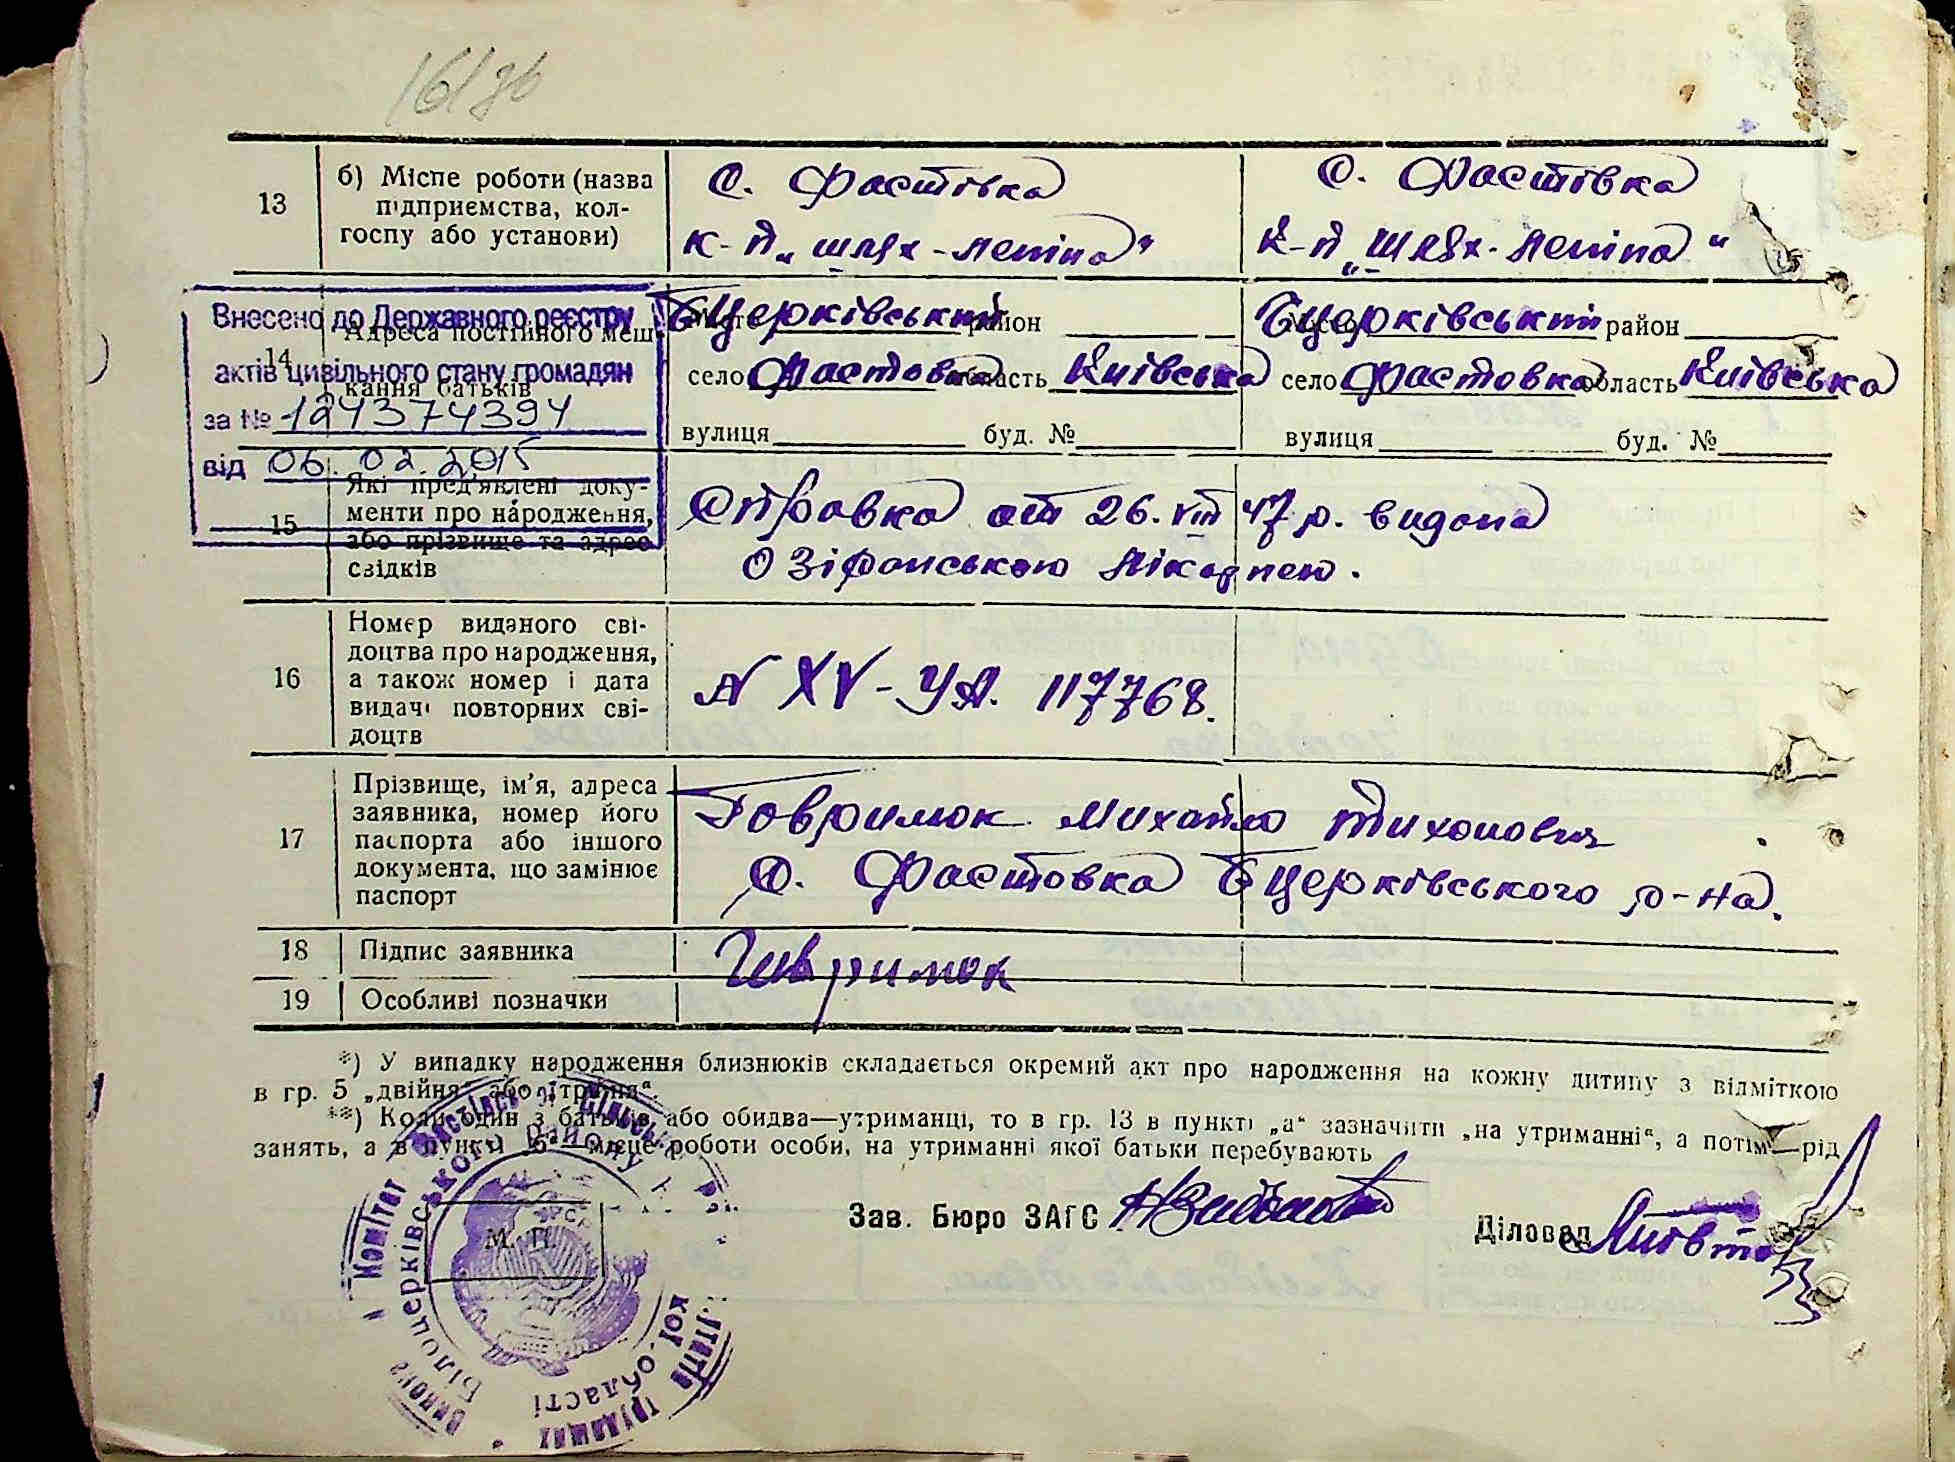 13
б) Місце роботи (назва підприємства, колгоспу або установи)
с. Фастівка
к-п „Шлях-Леніна"
с. Фастівка
к-п „Шлях-Леніна"
14
Адреса постійного мешкання батьків
Бцерківський район
село Фастовка область Київська
вулиця буд. №
Бцерківський район
село Фастовка область Київська
вулиця буд. №
Внесено до Державного реєстру
актів цивільного стану громадян
за №
від 06. 02. 2015
15
Які пред'явлені документи про народження, або прізвище та адрес свідків
Справка от 26.VIII 47 р. видана
Озірянською лікарнею.
16
Номер виданого свідоцтва про народження, а також номер і дата видачі повторних свідоцтв
N XV-УА. 117768.
17
Прізвище, ім'я, адреса заявника, номер його паспорта або іншого документа, що замінює паспорт
Гаврилюк Михайло Тихонович
с. Фастовка Бцерківського р-на.
18
Підпис заявника
Гаврилюк
19
Особливі позначки
*) У випадку народження близнюків складається окремий акт про народження на кожну дитину з відміткою
в гр. 5 „двійня" або „трійня".
**) Коли один з батьків або обидва—утриманці, то в гр. 13 в пункті „а" зазначити „на утриманні", а потім—рід
занять, а в пункті „б"—місце роботи особи, на утриманні якої батьки перебувають
Зав. Бюро ЗАГС
Діловод
М. П.
Білоцерківського району
області
трудящих